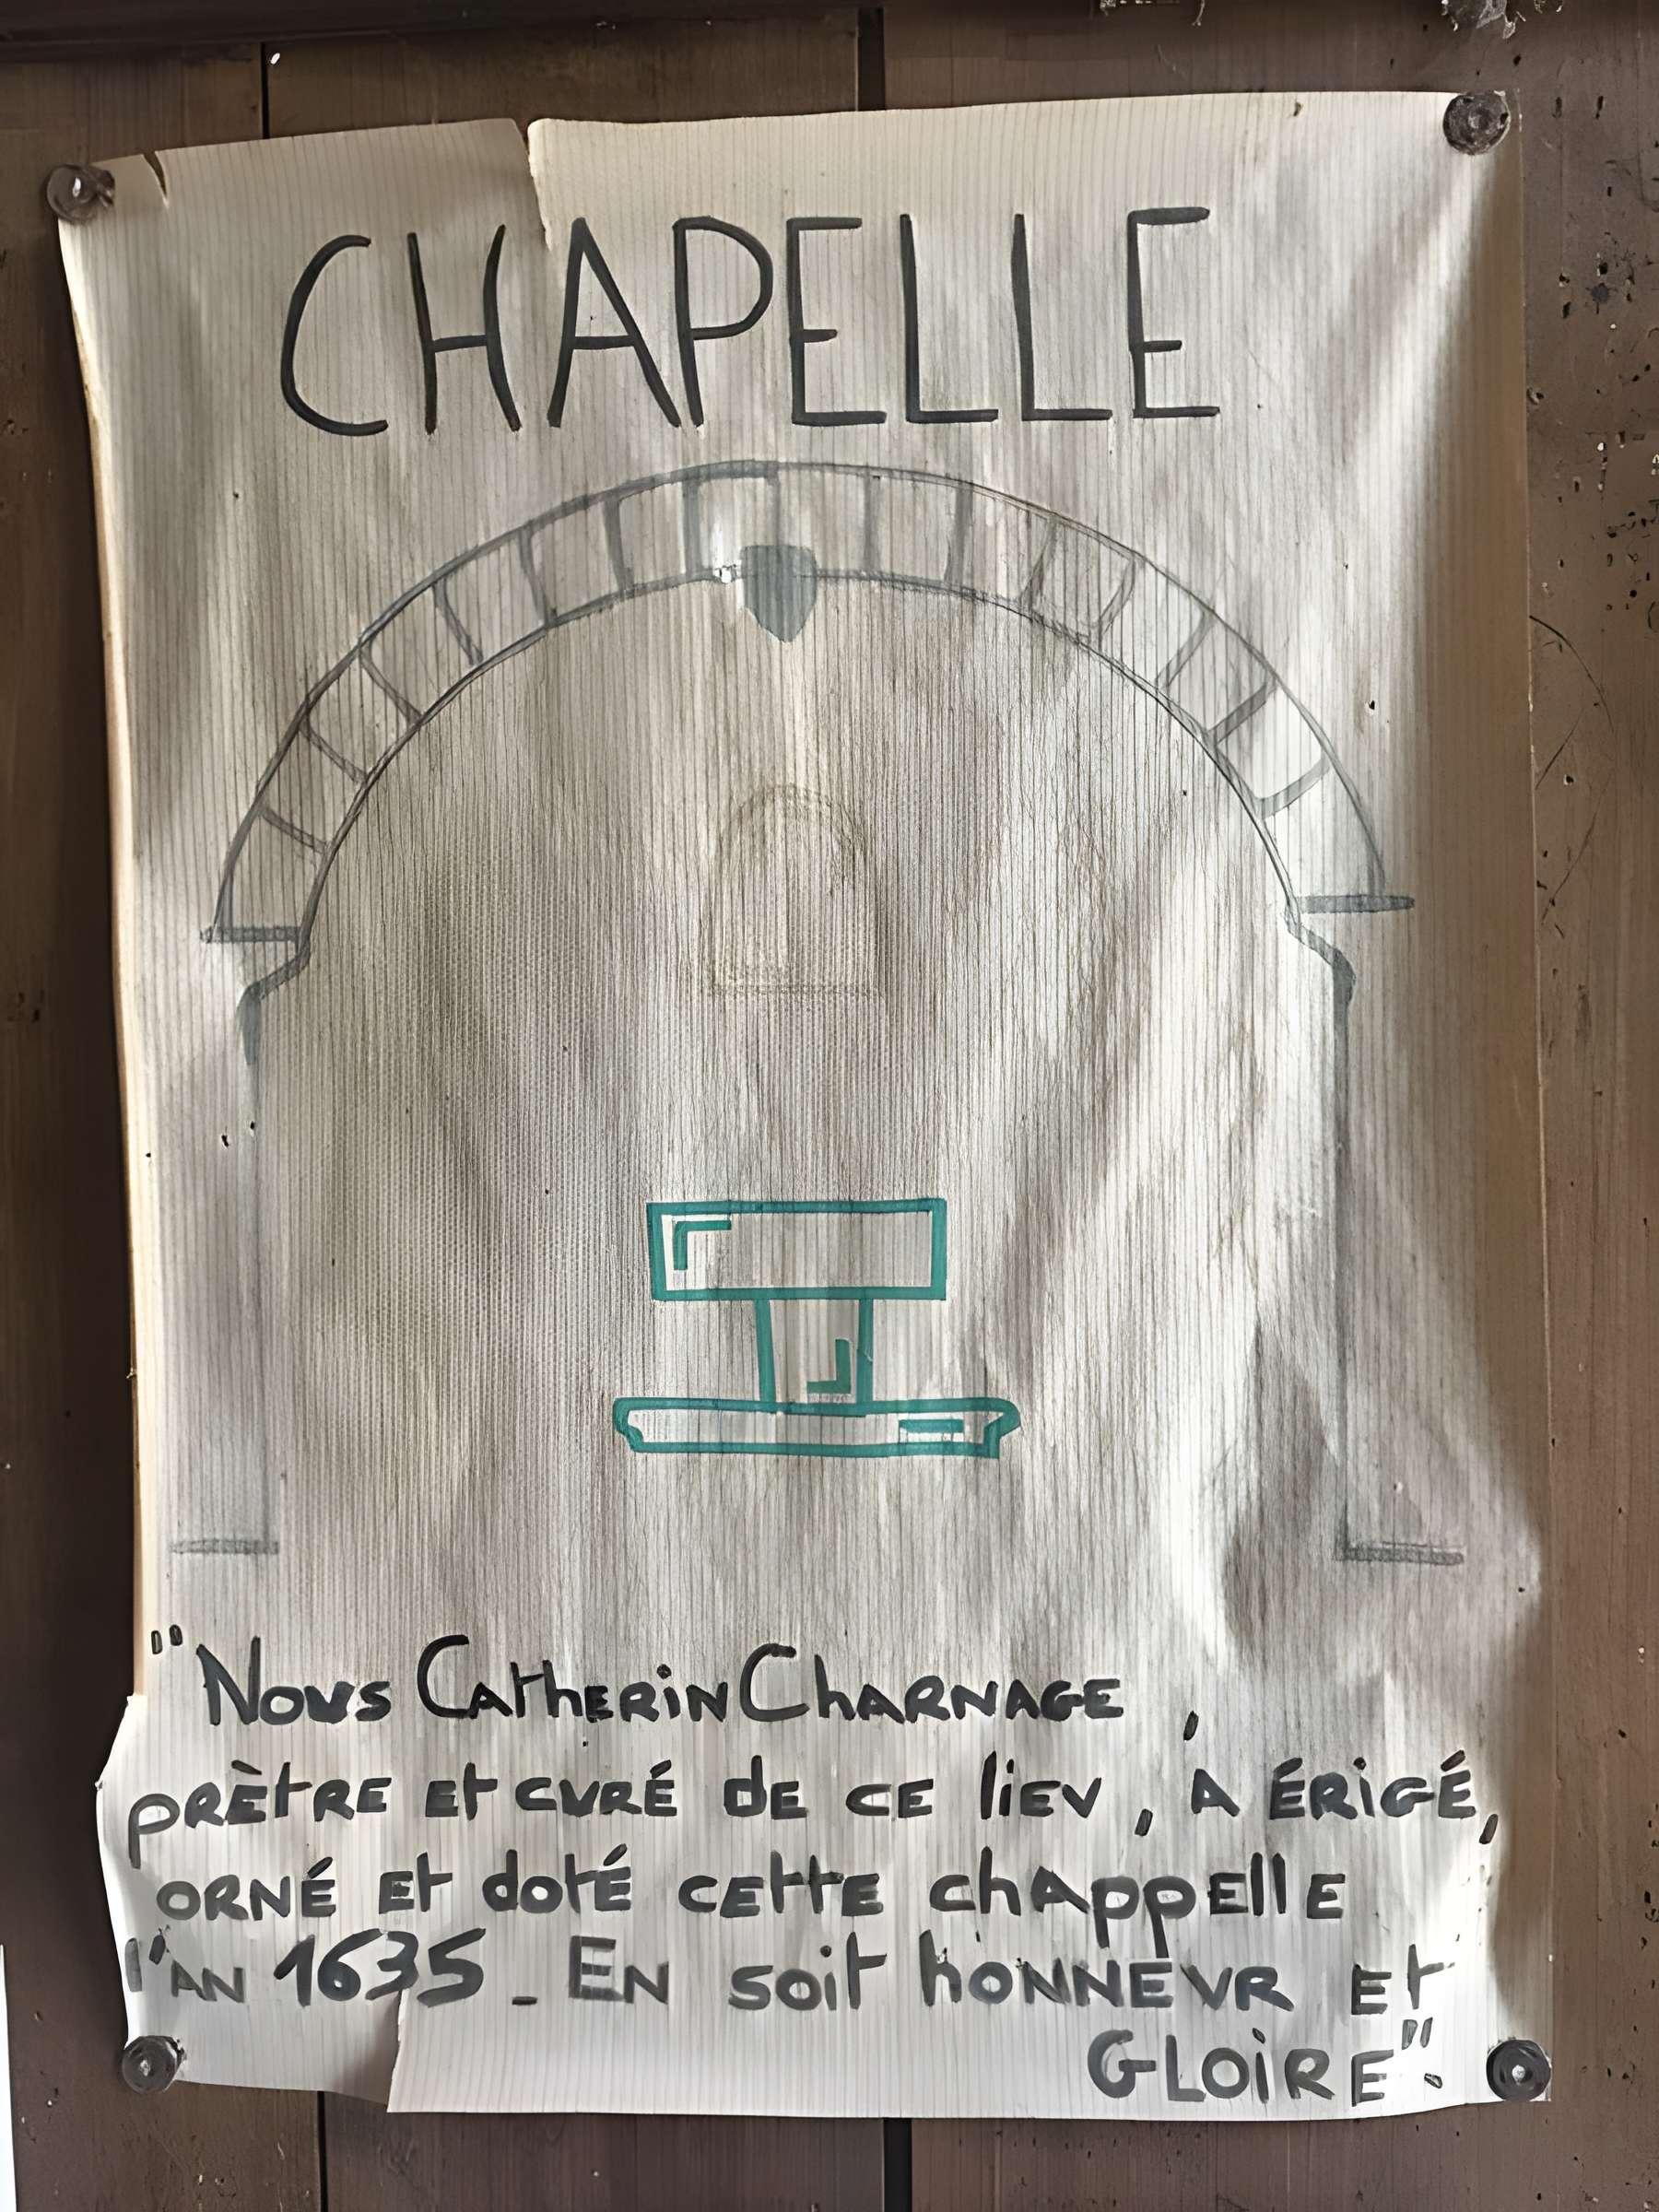 CHAPELLE
"Novs Catherin Charnage,
prètre et cvré de ce liev, a érigé,
orné et doté cette chappelle
l'an 1635_ En soit honnevr et
Gloire".